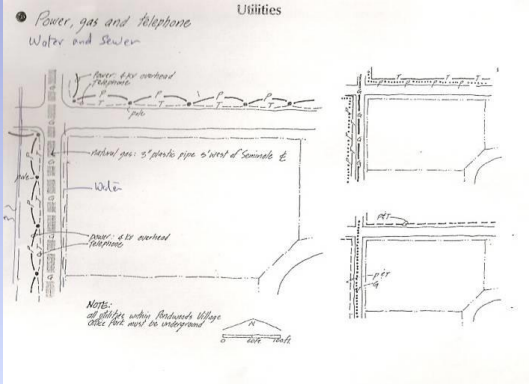 Utilities
Power, gas and telephone
Water and Sewer
power: 4 kv overhead
telephone
P P P P
T T T T
pole
natural gas: 3" plastic pipe 5' west of Seminole ℄
pole
Water
power: 4 kv overhead
telephone
NOTE:
all utilities within Pondwards Village
Office Park must be underground
N
0 60ft 100ft
P&T
P&T
G